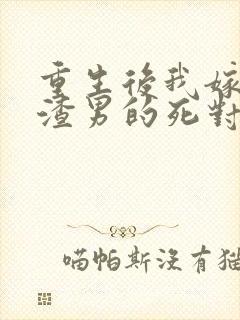 重生後我嫁
渣男的死對
喵帕斯沒有貓